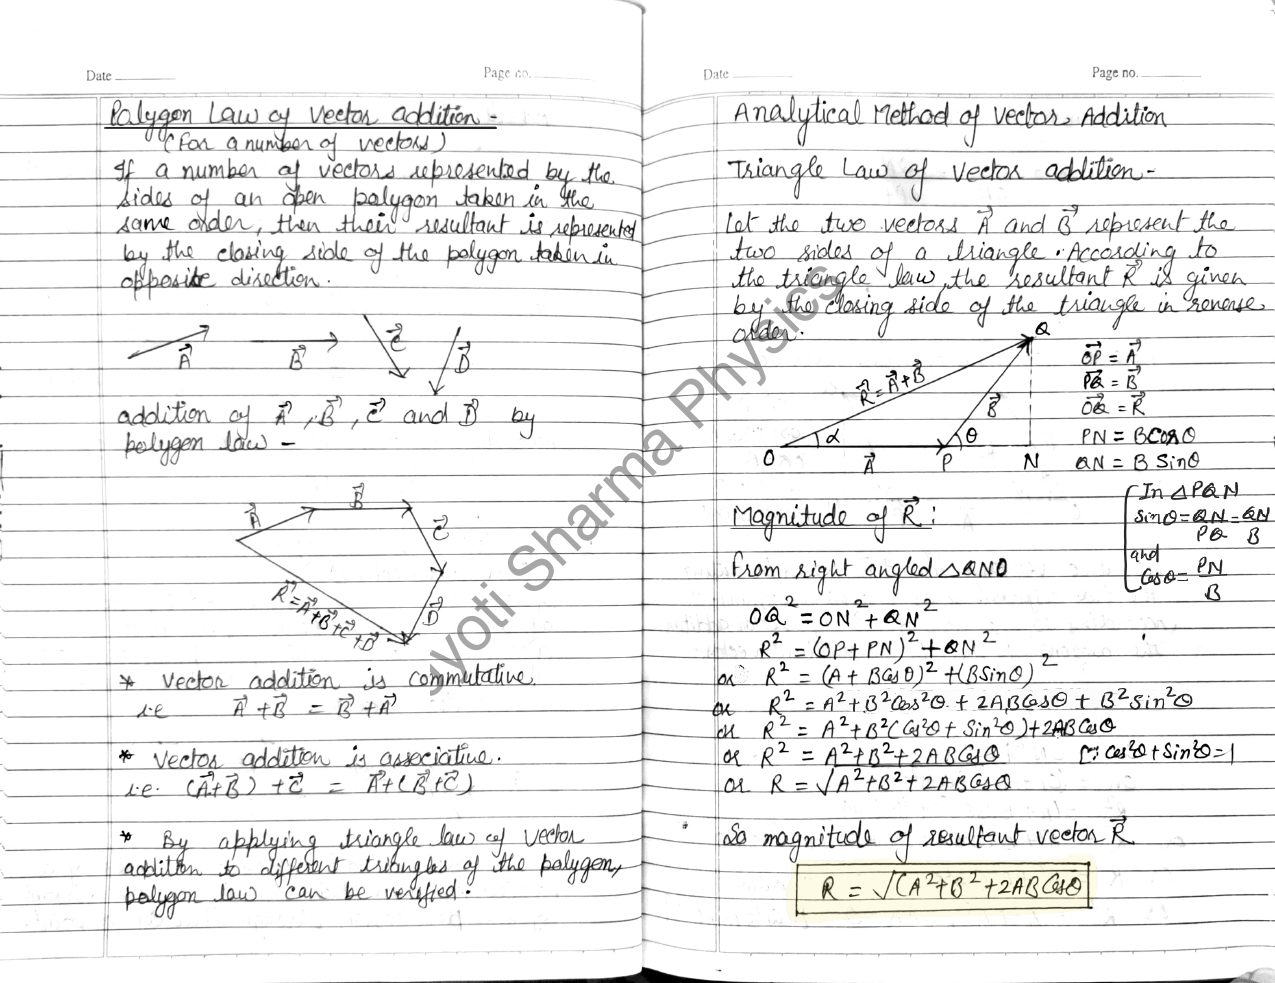 Date
Page no.
Polygon Law of vector addition -
(For a number of vectors)
If a number of vectors represented by the
sides of an open polygon taken in the
same order, then their resultant is represented
by the closing side of the polygon taken in
opposite direction.
A⃗
B⃗
C⃗
D⃗
addition of A⃗, B⃗, C⃗ and D⃗ by
polygon law -
A⃗
B⃗
C⃗
D⃗
R⃗ = A⃗+B⃗+C⃗+D⃗
* Vector addition is commutative.
i.e A⃗+B⃗ = B⃗+A⃗
* Vector addition is associative.
i.e. (A⃗+B⃗)+C⃗ = A⃗+(B⃗+C⃗)
* By applying triangle law of vector
addition to different triangles of the polygon,
polygon law can be verified.
Date
Page no.
Analytical Method of vector Addition
Triangle Law of vector addition -
Let the two vectors A⃗ and B⃗ represent the
two sides of a triangle. According to
the triangle law, the resultant R⃗ is given
by the closing side of the triangle in reverse
order.
Q
R⃗ = A⃗+B⃗
B⃗
α
θ
O
A⃗
P
N
OP⃗ = A⃗
PQ⃗ = B⃗
OQ⃗ = R⃗
PN = B Cos θ
QN = B Sin θ
In △PQN
Sin θ = QN/PQ = QN/B
and
Cos θ = PN/B
Magnitude of R⃗:
From right angled △QNO
OQ² = ON² + QN²
R² = (OP + PN)² + QN²
or R² = (A + B Cos θ)² + (B Sin θ)²
or R² = A² + B² Cos² θ + 2AB Cos θ + B² Sin² θ
or R² = A² + B² (Cos² θ + Sin² θ) + 2AB Cos θ
or R² = A² + B² + 2AB Cos θ [∵ Cos² θ + Sin² θ = 1
or R = √A² + B² + 2AB Cos θ
So magnitude of resultant vector R⃗
R = √(A² + B² + 2AB Cos θ
Jyoti Sharma Physics